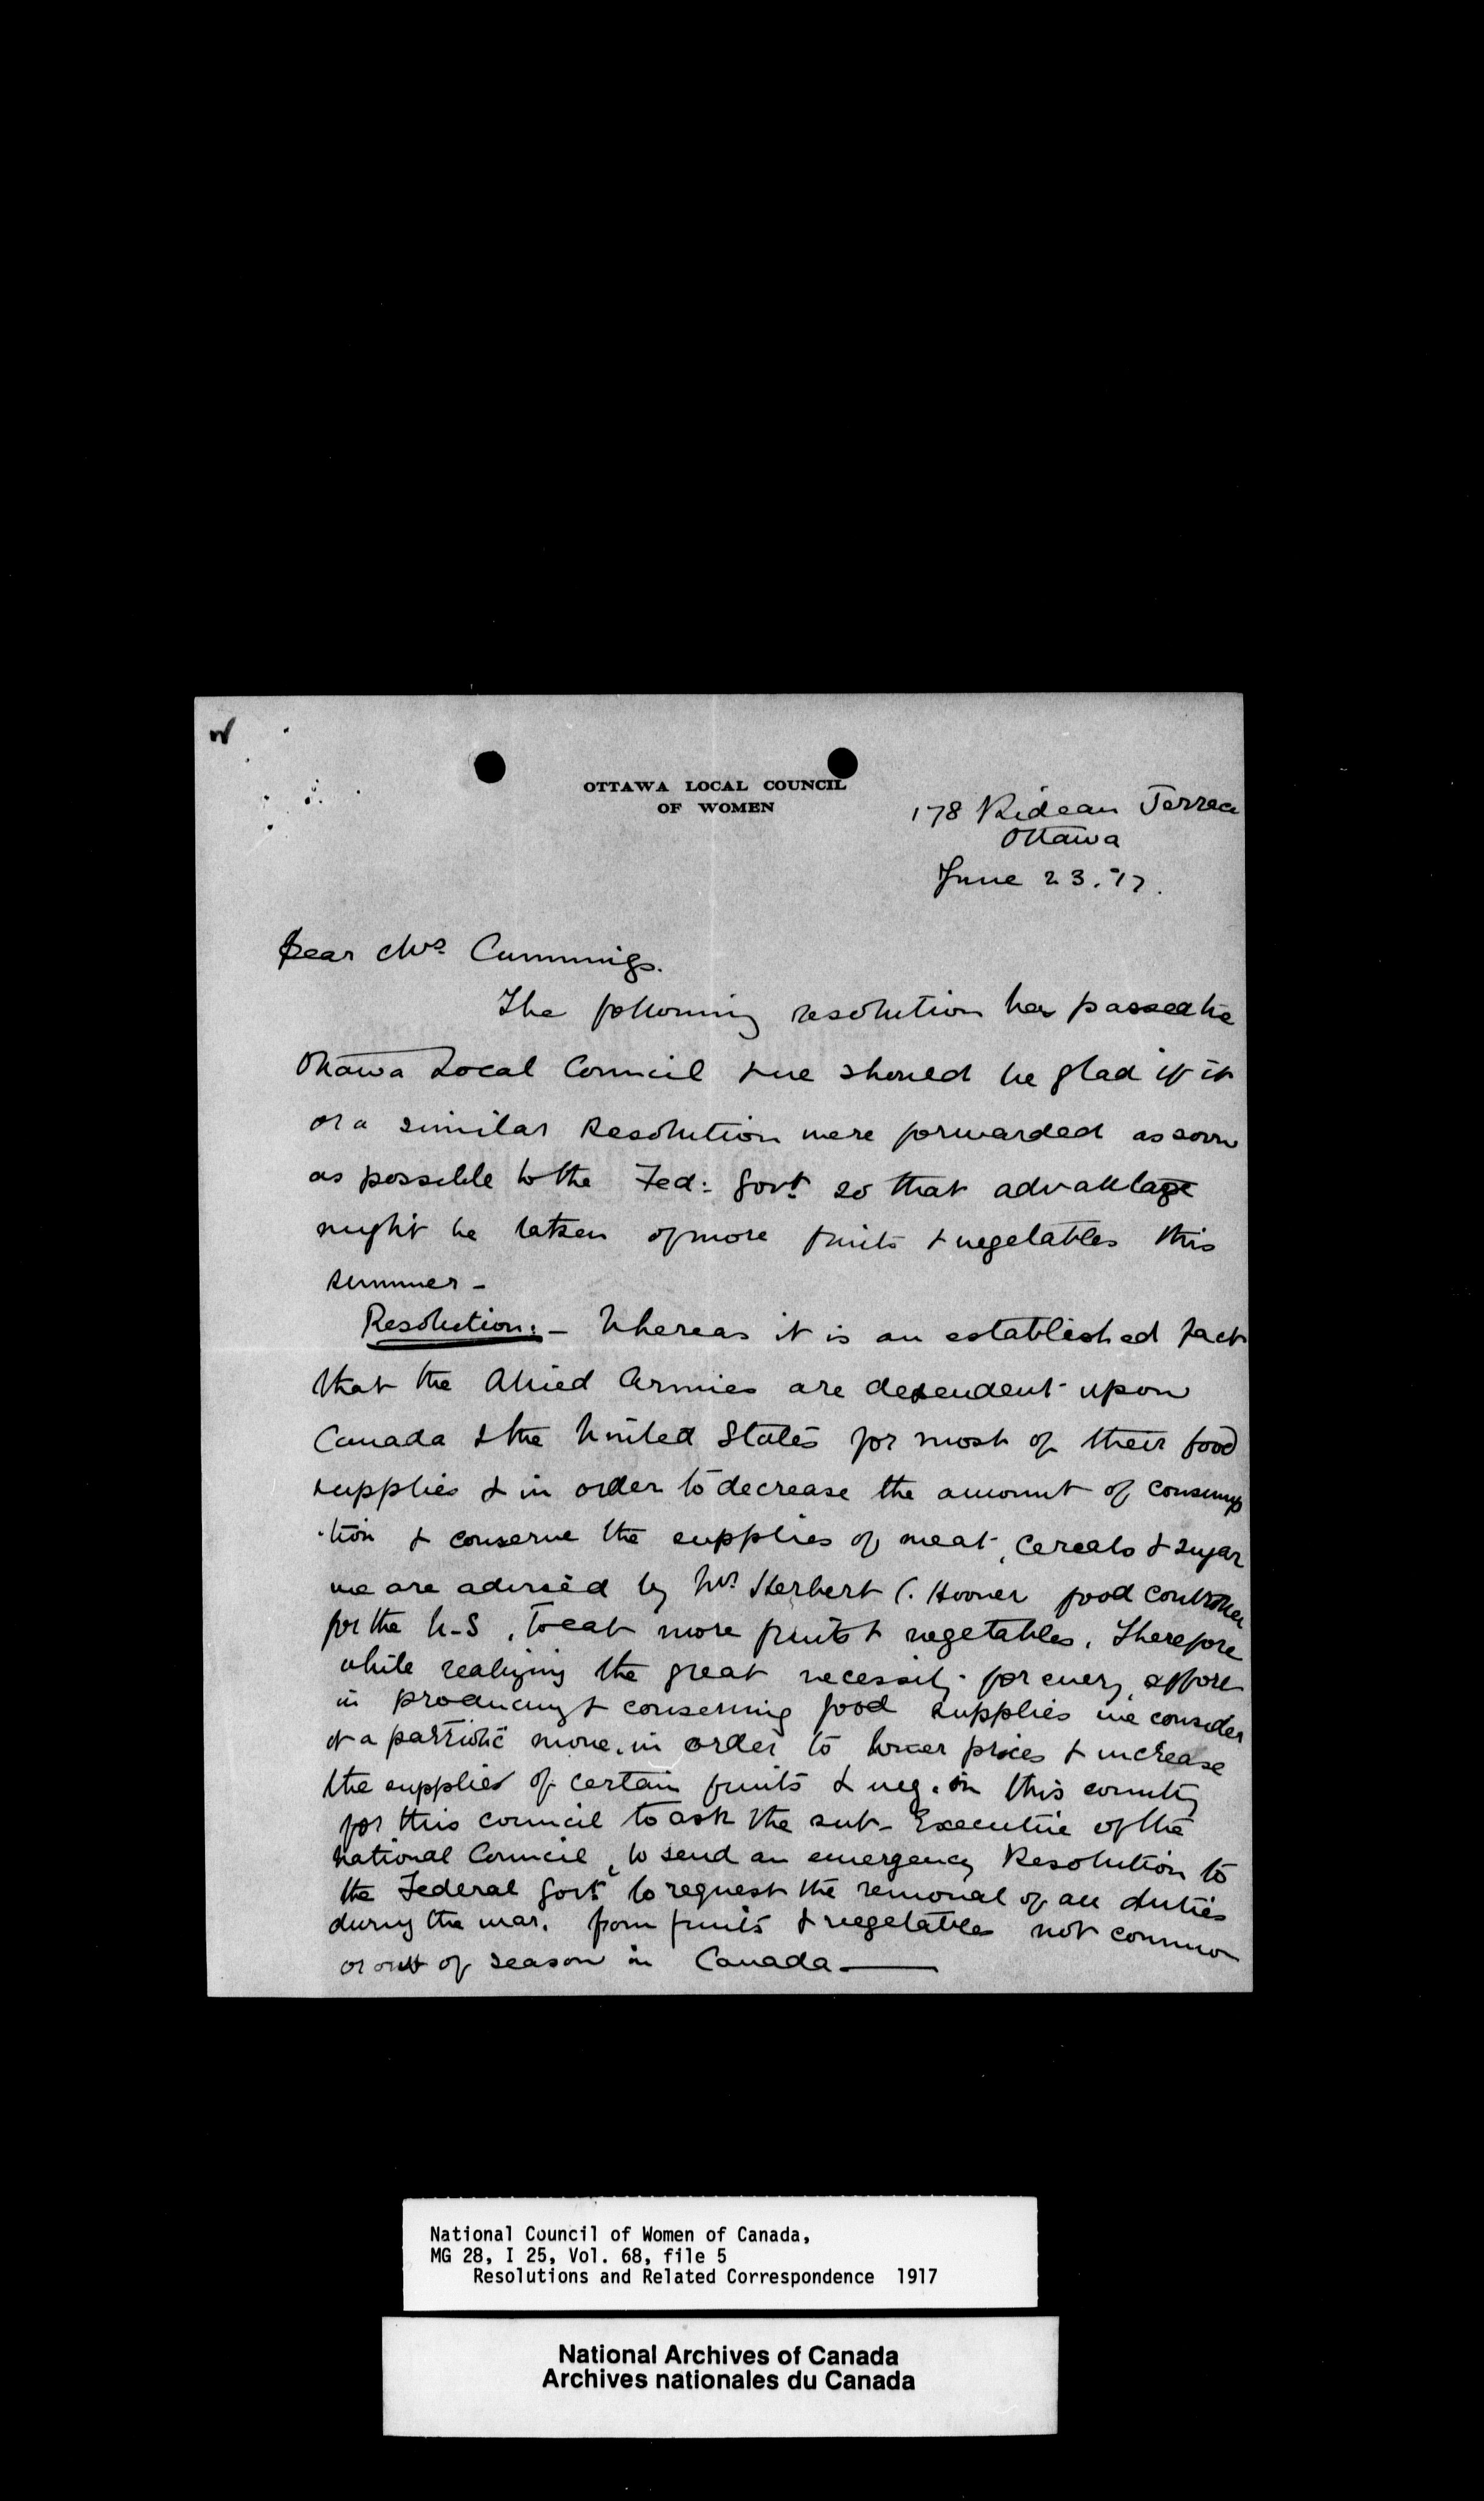 OTTAWA LOCAL COUNCIL
OF WOMEN
178 Rideau Terrace
Ottawa
June 23. 17.
Dear Mrs Cummings.
The following resolution has passed the
Ottawa Local Council & we should be glad if it
or a similar Resolution were forwarded as soon
as possible to the Fed: Govt. so that advantage
might be taken of more fruits & vegetables this
summer -
Resolution: - Whereas it is an established fact
that the Allied Armies are dependent upon
Canada & the United States for most of their food
supplies & in order to decrease the amount of consump
-tion & conserve the supplies of meat, cereals & sugar
we are advised by Mr Herbert C. Hoover food controller
for the U-S, to eat more fruits & vegetables. Therefore
while realizing the great necessity for every effort
in producing & conserving food supplies we consider
it a patriotic move, in order to lower prices & increase
the supplies of certain fruits & veg. in this country
for this council to ask the sub-Executive of the
National Council, to send an emergency Resolution to
the Federal Govt. to request the removal of all duties
during the war, from fruits & vegetables not common
or out of season in Canada —
National Council of Women of Canada,
MG 28, I 25, Vol. 68, file 5
Resolutions and Related Correspondence 1917
National Archives of Canada
Archives nationales du Canada